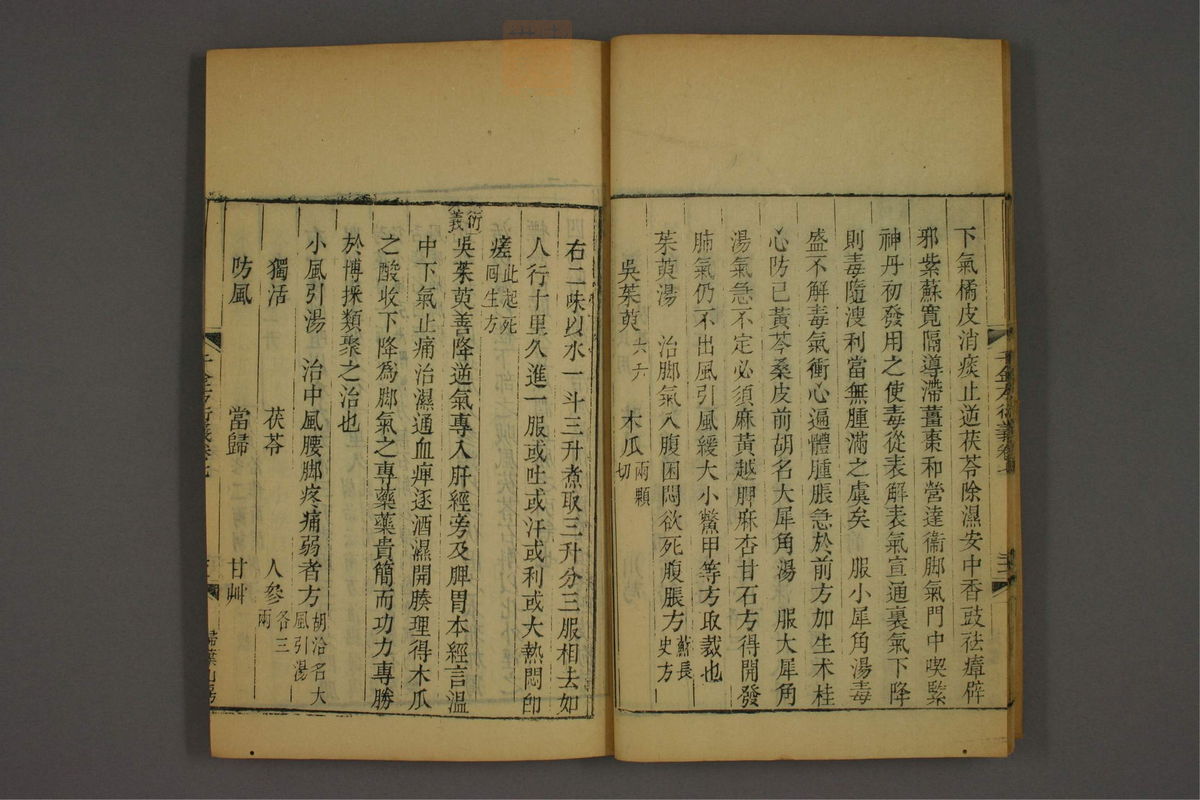 下氣橘皮消痰止逆茯苓除濕安中香豉祛瘴辟
邪紫蘇寬隔導滯薑棗和營達衞脚氣門中喫緊
神丹初發用之使毒從表解表氣宣通裏氣下降
則毒隨溲利當無腫滿之虞矣　服小犀角湯毒
盛不解毒氣衝心遍體腫脹急於前方加生术桂
心防已黃芩桑皮前胡名大犀角湯　服大犀角
湯氣急不定必須麻黃越脾麻杏甘石方得開發
肺氣仍不出風引風緩大小鱉甲等方取裁也
茱萸湯　治脚氣入腹困悶欲死腹脹方蘇長史方
吳茱萸六升　木瓜兩顆切
右二味以水一斗三升煮取三升分三服相去如
人行十里久進一服或吐或汗或利或大熱悶卽
瘥此起死回生方
衍義吳茱萸善降逆氣專入肝經旁及脾胃本經言溫
中下氣止痛治濕通血痺逐酒濕開腠理得木瓜
之酸收下降爲脚氣之專藥藥貴簡而功力專勝
於博採類聚之治也
小風引湯　治中風腰脚疼痛弱者方胡洽名大風引湯
獨活　茯苓　人參各三兩
防風　當歸　甘艸
千金方衍義卷七
掃葉山房